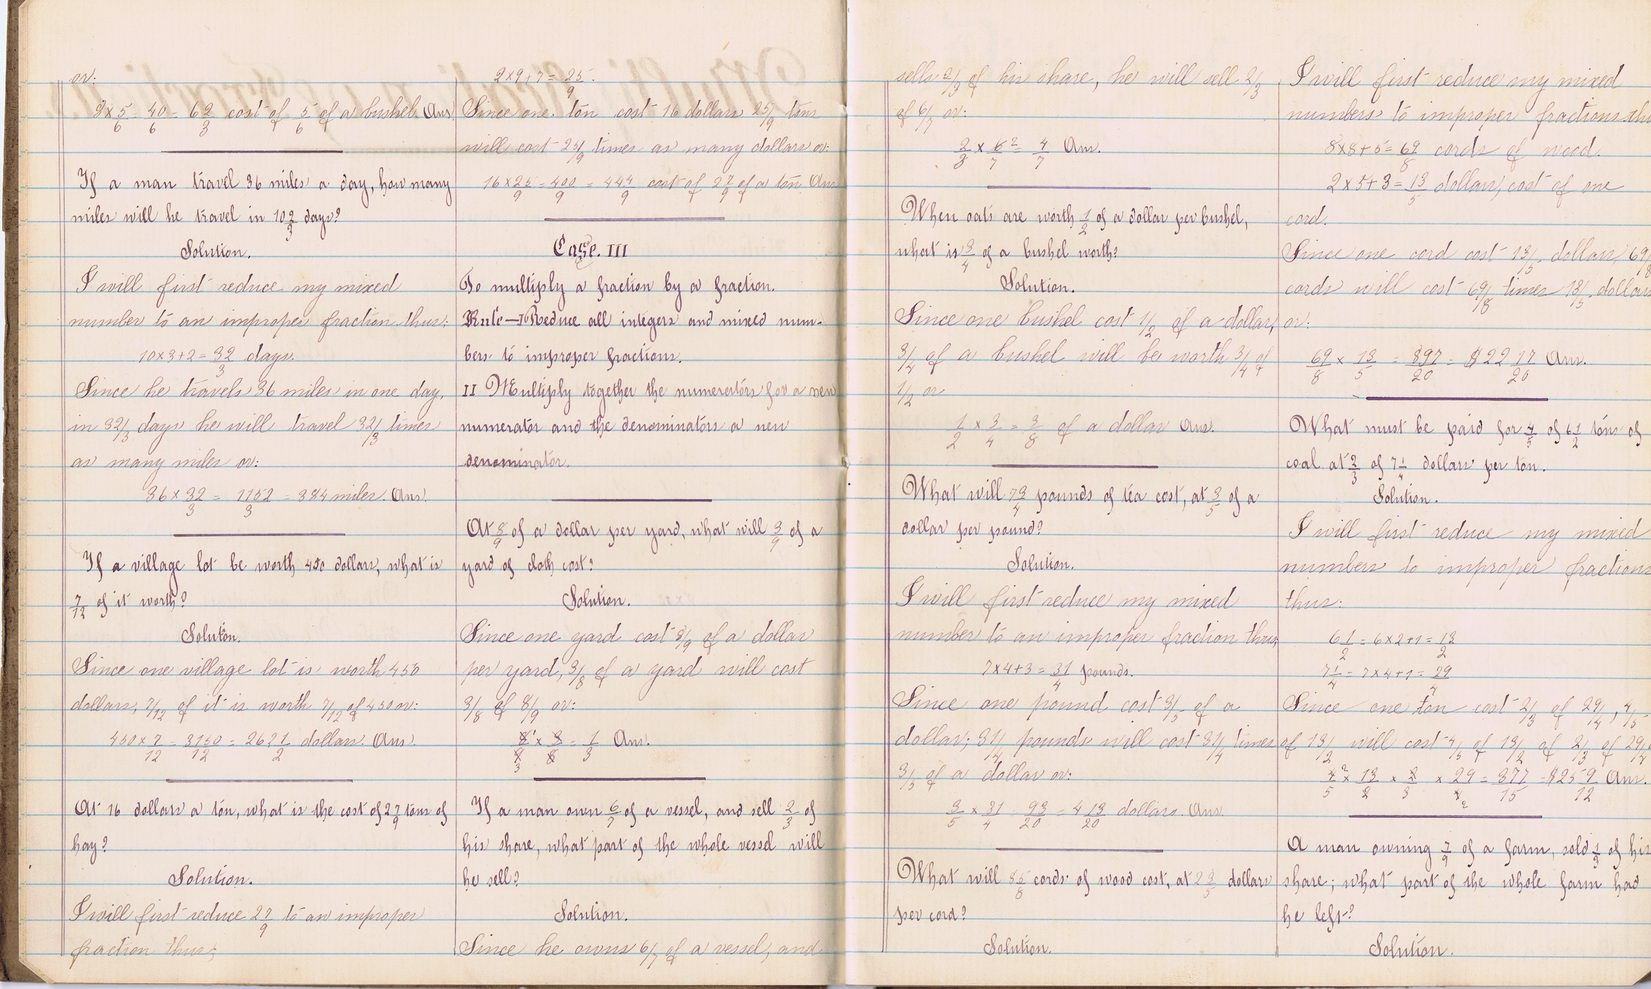 or:
8×5/6 = 40/6 = 6 2/3 cost of 5/6 of a bushel. Ans
If a man travel 36 miles a day, how many
miles will he travel in 10 2/3 days?
Solution.
I will first reduce my mixed
number to an improper fraction thus:
10×3+2=32/3 days.
Since he travels 36 miles in one day,
in 32/3 days he will travel 32/3 times
as many miles or:
36×32/3 = 1152/3 = 384 miles. Ans.
If a village lot be worth 450 dollars, what is
7/12 of it worth?
Soluton.
Since one village lot is worth 450
dollars, 7/12 of it is worth 7/12 of 450 or:
450×7/12 = 3150/12 = 262 1/2 dollars. Ans.
At 16 dollars a ton, what is the cost of 2 7/9 tons of
hay?
Solution.
I will first reduce 2 7/9 to an improper
fraction thus;
2×9+7=25/9.
Since one ton cost 16 dollars 25/9 tons
will cost 25/9 times as many dollars or:
16×25/9 = 400/9 = 44 4/9 cost of 2 7/9 of a ton Ans
Case. III
To multiply a fraction by a fraction.
Rule—I Reduce all integers and mixed num-
bers to improper fractions.
II Multiply together the numerators for a new
numerator and the denominators a new
denominator.
At 8/9 of a dollar per yard, what will 3/8 of a
yard of cloth cost?
Solution.
Since one yard cost 8/9 of a dollar
per yard, 3/8 of a yard will cost
3/8 of 8/9 or:
8/9 × 3/8 = 1/3 Ans.
If a man own 6/7 of a vessel, and sell 2/3 of
his share, what part of the whole vessel will
he sell?
Solution.
Since he owns 6/7 of a vessel, and
sells 2/3 of his share, he will sell 2/3
of 6/7 or:
2/3 × 6/7 = 4/7 Ans.
When oats are worth 1/2 of a dollar per bushel,
what is 3/4 of a bushel worth?
Solution.
Since one bushel cost 1/2 of a dollar,
3/4 of a bushel will be worth 3/4 of
1/2 or
1/2 × 3/4 = 3/8 of a dollar Ans.
What will 7 3/4 pounds of tea cost, at 3/5 of a
dollar per pound?
Solution.
I will first reduce my mixed
number to an improper fraction thus,
7×4+3=31/4 pounds.
Since one pound cost 3/5 of a
dollar; 31/4 pounds will cost 31/4 times
3/5 of a dollar or:
3/5 × 31/4 = 93/20 = 4 13/20 dollars. Ans.
What will 8 5/8 cords of wood cost, at 2 3/5 dollars
per cord?
Solution.
I will first reduce my mixed
numbers to improper fractions thus
8×8+5=69/8 cords of wood.
2×5+3=13/5 dollars, cost of one
cord.
Since one cord cost 13/5 dollars 69/8
cords will cost 69/8 times 13/5 dollars
or:
69/8 × 13/5 = 897/20 = $22 17/20 Ans.
What must be paid for 4/5 of 6 1/2 tons of
coal at 2/3 of 7 1/4 dollars per ton.
Solution.
I will first reduce my mixed
numbers to improper fractions
thus:
6 1/2 = 6×2+1=13/2
7 1/4 = 7×4+1=29/4
Since one ton cost 2/3 of 29/4, 4/5
of 13/2 will cost 4/5 of 13/2 of 2/3 of 29/4
4/5 × 13/2 × 2/3 × 29 = 377/15 = $25 9/12 Ans.
A man owning 7/9 of a farm, sold of his
share; what part of the whole farm had
he left?
Solution.